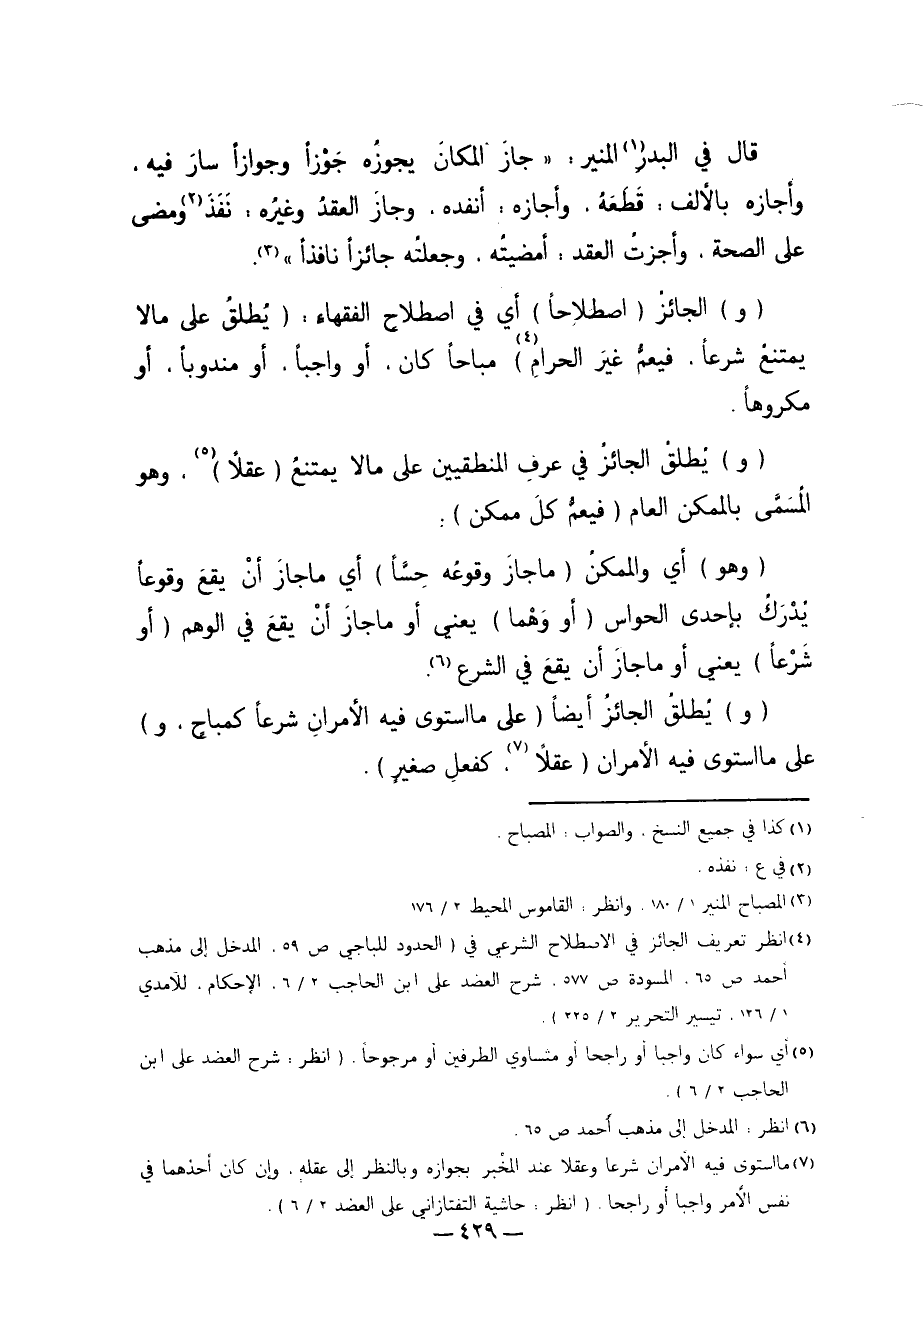 قال في البدرِ(١) المنير : « جازَ المكانَ يجوزُه جَوْزاً وجوازاً سارَ فيه ،
وأجازه بالألف : قَطَعَهُ ، وأجازه : أنفده ، وجازَ العقدُ وغيرُه : نَفَذَ(٢) ومضى
على الصحة ، وأجزتُ العقد : أمضيتُه ، وجعلتُه جائزاً نافذاً »(٣).
( و ) الجائزُ ( اصطلاحاً ) أي في اصطلاح الفقهاء : ( يُطلقُ على مالا
يمتنعُ شرعاً ، فيعمُّ غيرَ الحرامِ(٤) ) مباحاً كان ، أو واجباً ، أو مندوباً ، أو
مكروهاً .
( و ) يُطلقُ الجائزُ في عرفِ المنطقيين على مالا يمتنعُ ( عقلاً )(٥) ، وهو
المُسَمَّى بالممكن العام ( فيعمُّ كلَ ممكن ) :
( وهو ) أي والممكنُ ( ماجازَ وقوعُه حِسَّاً ) أي ماجازَ أنْ يقعَ وقوعاً
يُدْرَكُ بإحدى الحواس ( أو وَهْما ) يعني أو ماجازَ أنْ يقعَ في الوهم ( أو
شَرْعاً ) يعني أو ماجازَ أن يقعَ في الشرع(٦).
( و ) يُطلقُ الجائزُ أيضاً ( على مااستوى فيه الأمرانِ شرعاً كمباحٍ ، و )
على مااستوى فيه الأمران ( عقلاً(٧)، كفعلِ صغيرٍ ) .
(١) كذا في جميع النسخ . والصواب : المصباح .
(٢) في ع : نفذه .
(٣) المصباح المنير ١ / ١٨٠ ، وانظر : القاموس المحيط ٢ / ١٧٦
(٤) انظر تعريف الجائز في الاصطلاح الشرعي في ( الحدود للباجي ص ٥٩ ، المدخل إلى مذهب
أحمد ص ٦٥ ، المسودة ص ٥٧٧ ، شرح العضد على ابن الحاجب ٢ / ٦ ، الإحكام ، للآمدي
١ / ١٢٦ ، تيسير التحرير ٢ / ٢٢٥ ) .
(٥) أي سواء كان واجبا أو راجحا أو متساوي الطرفين أو مرجوحاً . ( انظر : شرح العضد على ابن
الحاجب ٢ / ٦ ) .
(٦) انظر : المدخل إلى مذهب أحمد ص ٦٥ .
(٧) مااستوى فيه الأمران شرعا وعقلا عند المخْبر بجوازه وبالنظر إلى عقله ، وإن كان أحدهما في
نفس الأمر واجبا أو راجحا . ( انظر : حاشية التفتازاني على العضد ٢ / ٦ ) .
— ٤٢٩ —